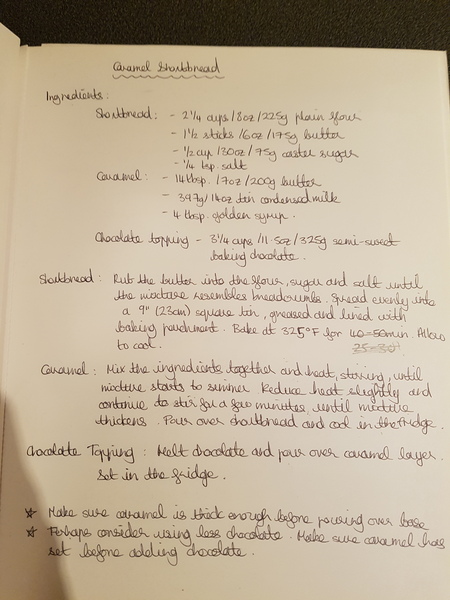 Caramel Shortbread
Ingredients:
Shortbread: - 2 1/4 cups/8oz/225g plain flour
- 1 1/2 sticks/6oz/175g butter
- 1/2 cup/3oz/75g caster sugar
- 1/4 tsp. salt
Caramel: - 14 tbsp./7oz/200g butter
- 397g/14oz tin condensed milk
- 4 tbsp. golden syrup.
Chocolate topping - 3 1/4 cups/11.5oz/325g semi-sweet
baking chocolate.
Shortbread: Rub the butter into the flour, sugar and salt until
the mixture resembles breadcrumbs. Spread evenly into
a 9" (23cm) square tin, greased and lined with
baking parchment. Bake at 325°F for 40-50min. Allow
to cool. 25-30?
Caramel: Mix the ingredients together and heat, stirring, until
mixture starts to simmer. Reduce heat slightly and
continue to stir for a few minutes, until mixture
thickens. Pour over shortbread and cool in the fridge.
Chocolate Topping: Melt chocolate and pour over caramel layer.
Set in the fridge.
☆ Make sure caramel is thick enough before pouring over base
☆ Perhaps consider using less chocolate. Make sure caramel has
set before adding chocolate.